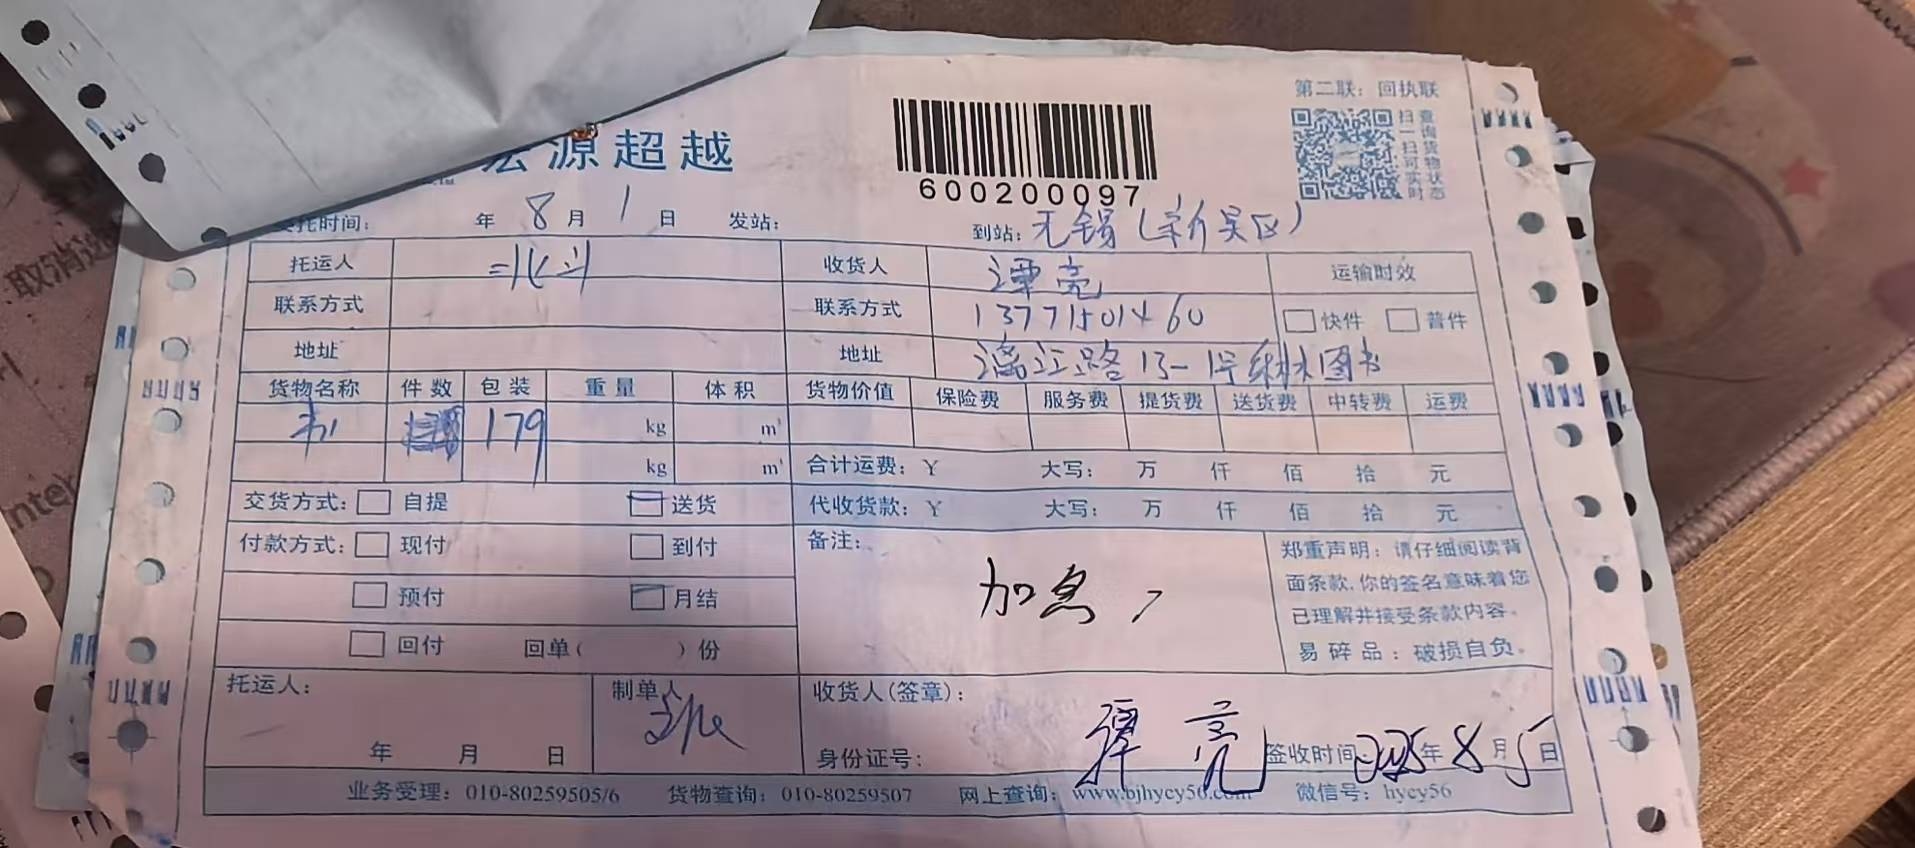 第二联：回执联
源超越
600200097
扫一扫可实时
查询货物状态
托时间： 年 8 月 1 日 发站： 到站：无锡（新吴区）
托运人 北斗 收货人 谭亮 运输时效
联系方式 联系方式 13771501460 快件 普件
地址 地址 漓江路13-1号 图书
货物名称 件数 包装 重量 体积 货物价值 保险费 服务费 提货费 送货费 中转费 运费
书 179 kg m³
kg m³ 合计运费：¥ 大写： 万 仟 佰 拾 元
交货方式： 自提 送货 代收货款：¥ 大写： 万 仟 佰 拾 元
付款方式： 现付 到付 备注：
预付 月结 加急
回付 回单（ ）份
郑重声明：请仔细阅读背
面条款，你的签名意味着您
已理解并接受条款内容。
易碎品：破损自负。
托运人： 制单人 收货人（签章）：
谭亮
年 月 日 身份证号： 签收时间 2025年 8 月 5 日
业务受理：010-80259505/6 货物查询：010-80259507 网上查询：www.bjhycy56.com 微信号：hycy56
取消